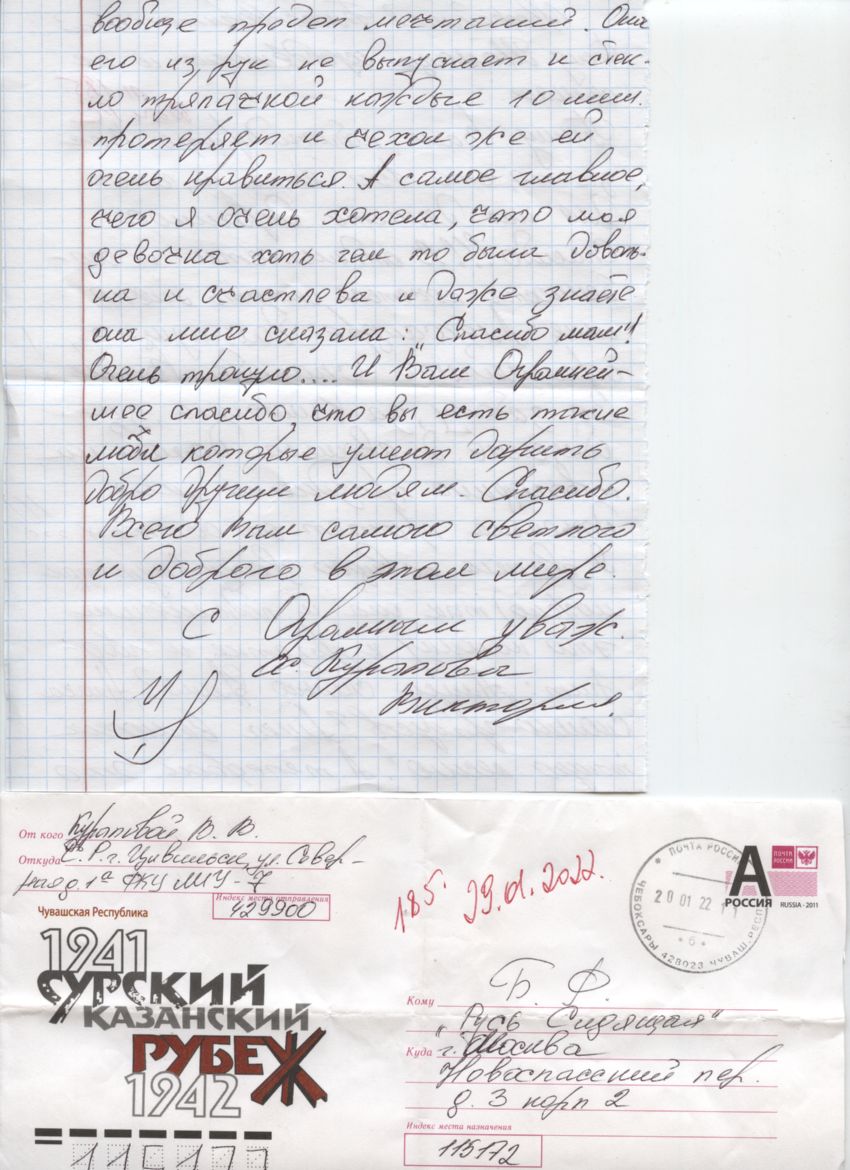 вообще предел мечтаний. Она
его из рук не выпускает и стек-
ло тряпачкой каждые 10 мин.
протеряет и чехол же ей
очень нравиться. А самое главное,
чего я очень хотела, что моя
девочка хоть чем то была доволь-
на и счастлева и даже знаете
она мне сказала: „Спасибо мам"!
Очень трогало.... И Вам Огромней-
шее спасибо, что вы есть такие
люди которые умеют дарить
добро другим людям. Спасибо.
Всего Вам самого светлого
и доброго в этом мире.
С Огромным уваж.
Курапова
Виктория.
От кого Кураповой В. В.
Откуда Ч.Р. г. Цивильск, ул. Север-
ная д. 1а ФКУ ЛИУ-7
Индекс места отправления
429900
185. 29.01.2022.
ПОЧТА РОССИИ
20 01 22 11
6
ЧЕБОКСАРЫ 428023 ЧУВАШ.РЕСП
А
ПОЧТА РОССИИ
РОССИЯ RUSSIA · 2011
Чувашская Республика
1941
СУРСКИЙ
КАЗАНСКИЙ
РУБЕЖ
1942
Кому Б. Ф.
„Русь Сидящая"
Куда г. Москва
Новоспасский пер.
д. 3 корп 2
Индекс места назначения
115172
115172